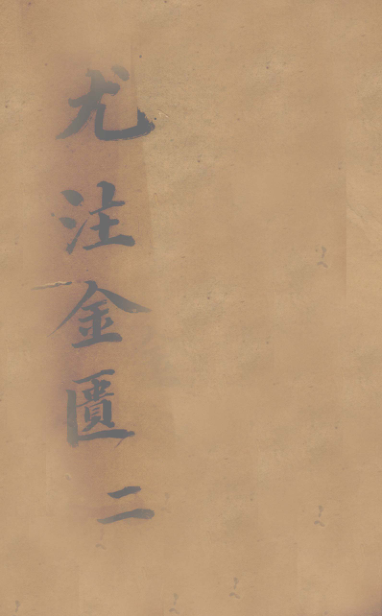 尤注金匱二